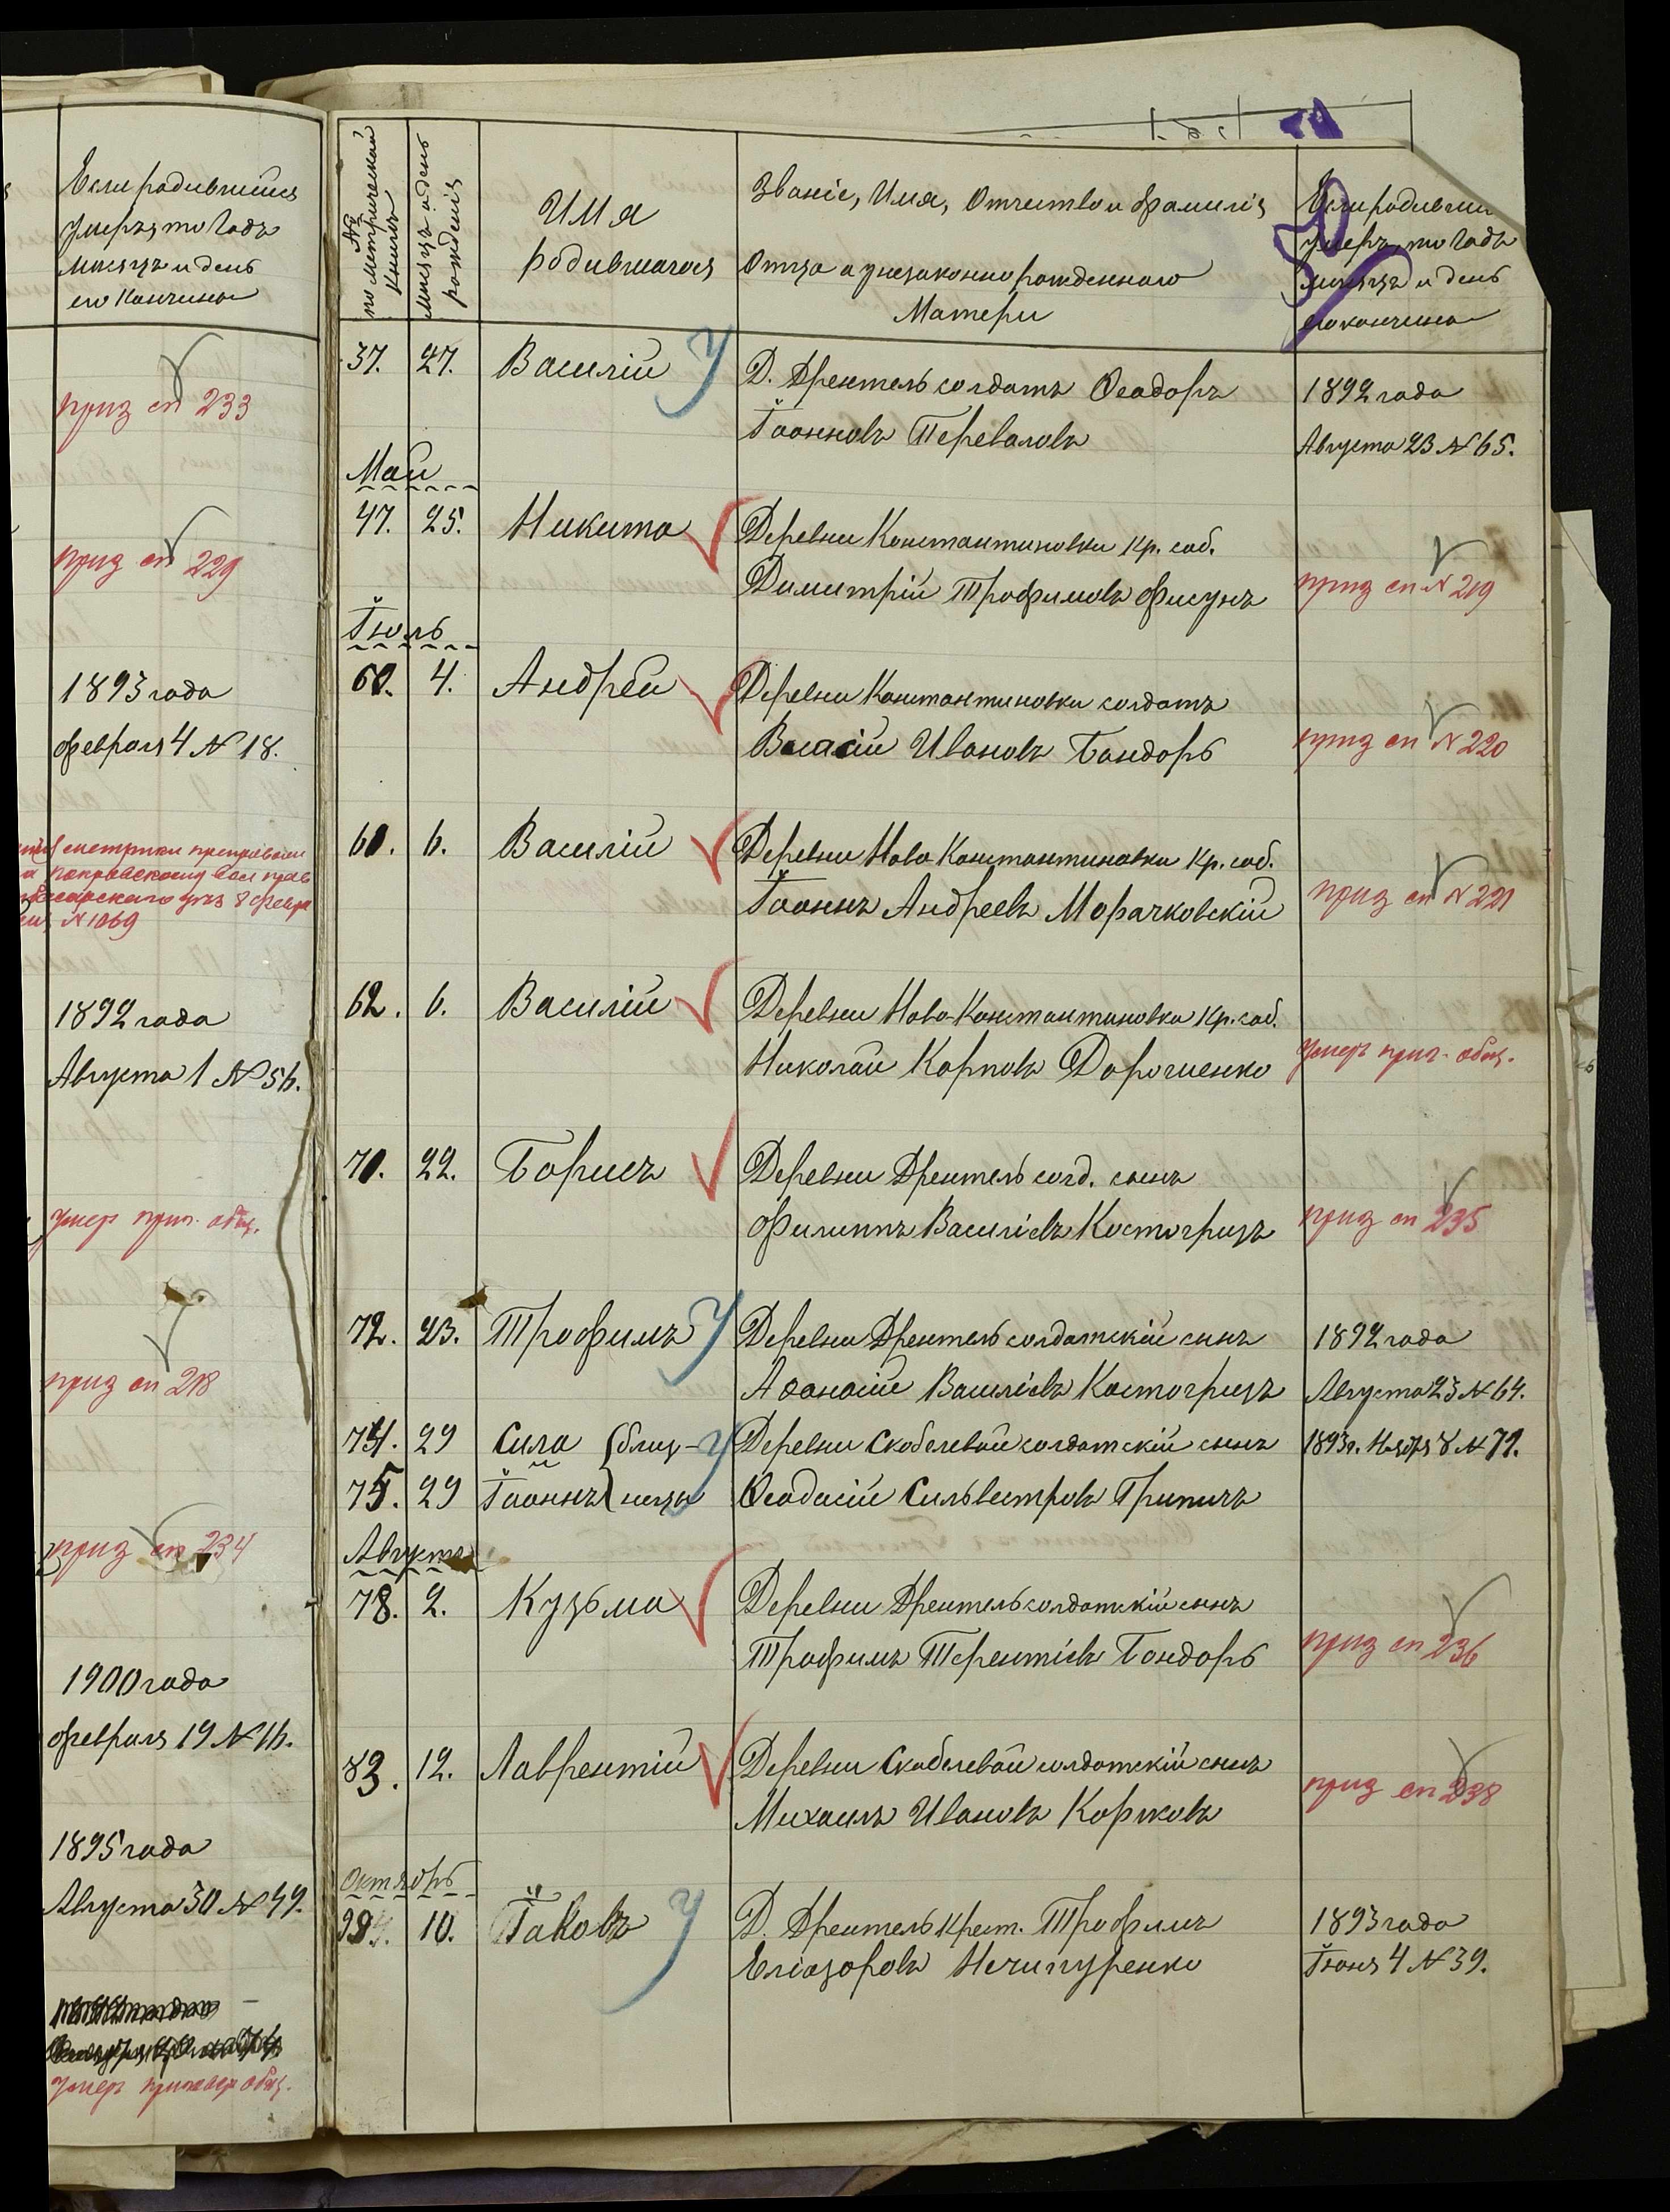 Если родившійся
умеръ, то годъ
мѣсяцъ и день
его кончины
приз сп 233
приз сп 229
1893 года
Февраля 4 № 18.
№ 1069
1892 года
Августа 1 № 56.
Умер приг. общ.
приз сп 218
приз сп 234
1900 года
Февраля 19 № 16.
1895 года
Августа 30 № 49.
Умеръ общ.
№№ по метрической книгѣ
мѣсяцъ и день рожденія
Имя
родившагося
Званіе, Имя, Отчество и Фамилія
Отца а у незаконно рожденнаго
Матери
Если родивши
умеръ, то годъ
мѣсяцъ и день
его кончины
37. 27. Василій У Д. Дрентель солдатъ Ѳеодоръ 1892 года
Іоанновъ Переваловъ Августа 23 № 65.
Май
47. 25. Никита Деревни Константиновки кр. соб.
Димитрій Трофимовъ Фисунъ приз сп № 219
Іюль
60. 4. Андрей Деревни Константиновки солдатъ
Власій Ивановъ Бондорь приз сп № 220
61. 6. Василій Деревни Ново Константиновки кр. соб.
Іоаннъ Андреевъ Морачковскій приз сп № 221
62. 6. Василій Деревни Ново-Константиновки кр. соб.
Николай Карповъ Дорошенко Умеръ приг. общ.
70. 22. Борисъ Деревни Дрентель солд. сынъ
Филиппъ Василіевъ Костогризъ приз сп 235
72. 23. Трофимъ У Деревни Дрентель солдатскій сынъ 1892 года
Аѳанасій Василіевъ Костогризъ Августа 23 № 64.
74. 29 Сила { близ- У Деревни Скобелевой солдатскій сынъ 1893 г. Ноября 8 № 71.
75. 29 Іоаннъ } нецы Ѳеодосій Сильвестровъ Грипичъ
Августъ
78. 2. Кузьма Деревни Дрентель солдатскій сынъ
Трофимъ Терентіевъ Бондорь приз сп 236
83. 12. Лаврентій Деревни Скобелевой солдатскій сынъ
Михаилъ Ивановъ Коржовъ приз сп 238
Октябрь
10. Іаковъ У Д. Дрентель крест. Трофимъ 1893 года
Еліазоровъ Нечипуренко Іюня 4 № 39.